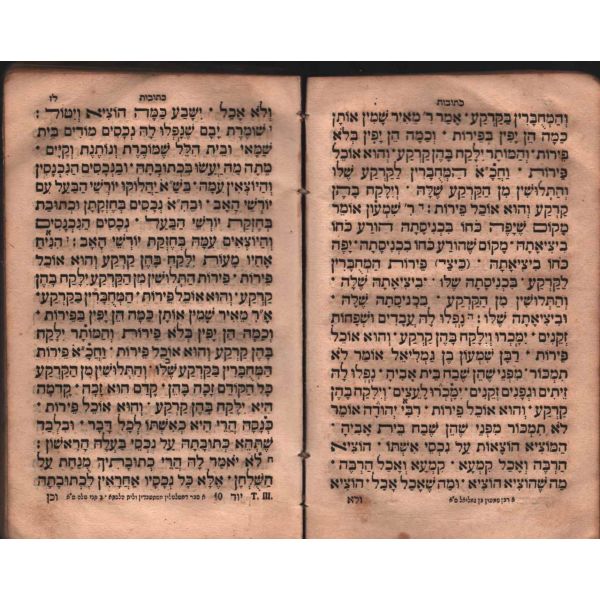 כתובות
והמחוברין בקרקע • אמר ר׳ מאיר שמין אותן
כמה הן יפין בפירות • וכמה הן יפין בלא
פירות • והמותר ילקח בהן קרקע והוא אוכל
פירות • וחכ״א המחוברין לקרקע שלו
והתלושין מן הקרקע שלה • וילקח בהן
קרקע והוא אוכל פירות : ר׳ שמעון אומר
מקום שיפה כחו בכניסתה הורע כחו
ביציאתה • מקום שהורע כחו בכניסתה יפה
כחו ביציאתה • (כיצד) פירות המחוברין
לקרקע • בכניסתה שלו • יציאתה שלה •
והתלושין מן הקרקע • בכניסתה שלה •
וביציאתה שלו : נפלו לה עבדים ושפחות
זקנים • ימכרו וילקח בהן קרקע והוא אוכל
פירות • רבן שמעון בן גמליאל אומר לא
תמכור • מפני שהן שבח בית אביה • נפלו לה
זיתים וגפנים זקנים • ימכרו לעצים וילקח בהן
קרקע והוא אוכל פירות • רבי יהודה אומר
לא תמכור מפני שהן שבח בית אביה •
המוציא הוצאות על נכסי אשתו • הוציא
הרבה ואכל קמעא • קמעא ואכל הרבה •
מה שהוציא הוציא • ומה שאכל אכל • הוציא
ולא
כתובות
לו
ולא אכל • ישבע כמה הוציא ויטול :
שומרת יבם שנפלו לה נכסים מודים בית
שמאי • ובית הלל שמוכרת ונותנת וקיים •
מתה מה יעשו בכתובתה • ובנכסים הנכנסין
והיוצאין עמה • בש״א יחלוקו יורשי הבעל עם
יורשי האב • ובה״א נכסים בחזקתן וכתובה
בחזקת יורשי הבעל • נכסים הנכנסים
והיוצאים עמה בחזקת יורשי האב : הניח
אחיו מעות ילקח בהן קרקע והוא אוכל
פירות • פירות התלושין מן הקרקע ילקח בהן
קרקע • והוא אוכל פירות • המחוברין בקרקע •
א״ר מאיר שמין אותן כמה הן יפין בפירות •
וכמה הן יפין בלא פירות • והמותר ילקח
בהן קרקע והוא אוכל פירות • וחכ״א פירות
המחוברין בקרקע שלו • והתלושין מן הקרקע
כל הקודם זכה בהן • קדם הוא זכה • קדמה
היא ילקח בהן קרקע • והוא אוכל פירות •
כנסה הרי היא כאשתו לכל דבר • ובלבד
שתהא כתובתה על נכסי בעלה הראשון :
לא יאמר לה הרי כתובתיך מנחת על
השלחן • אלא כל נכסיו אחראין לכתובתה
T. III. 10 יוד
וכן